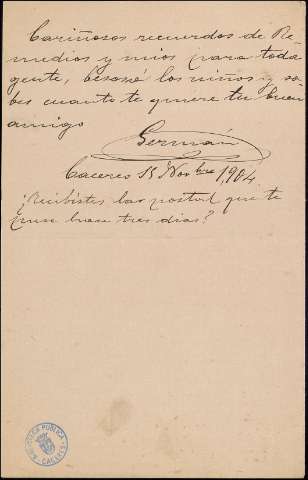 Cariñosos recuerdos de Re-
medios y mios para toda
gente, besos á los niños y sa-
bes cuanto te quiere tu buen
amigo
Germán
Caceres 15 Novbre 1904
¿Recibistes las postal que te
puse hase tres dias?
BIBLIOTECA PUBLICA
CACERES